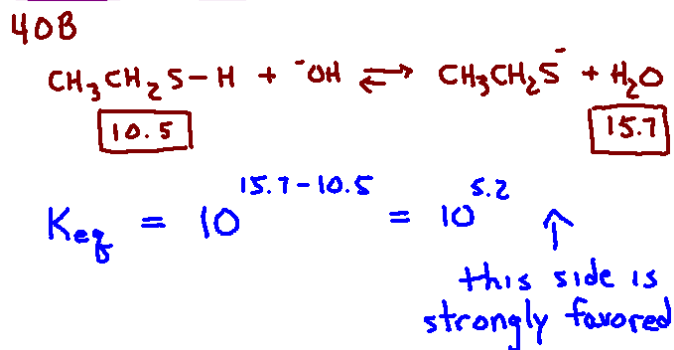 40B
CH₃CH₂S-H + ⁻OH ⇌ CH₃CH₂S⁻ + H₂O
10.5 15.7
Keq = 10^15.7-10.5 = 10^5.2 ↑
this side is
strongly favored